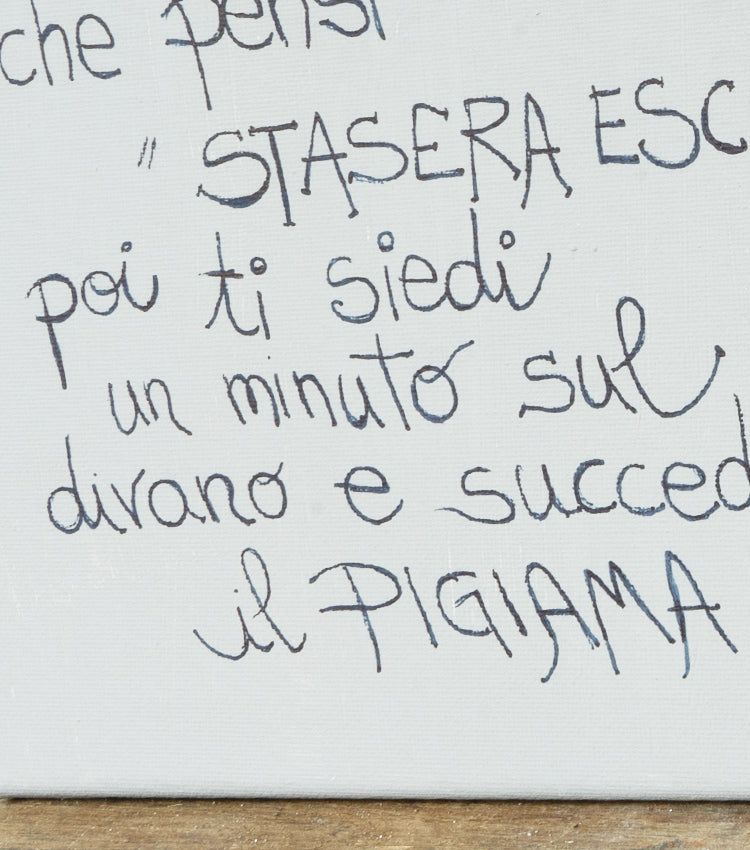 che pensi
" STASERA ESC
poi ti siedi
un minuto sul
divano e succed
il PIGIAMA